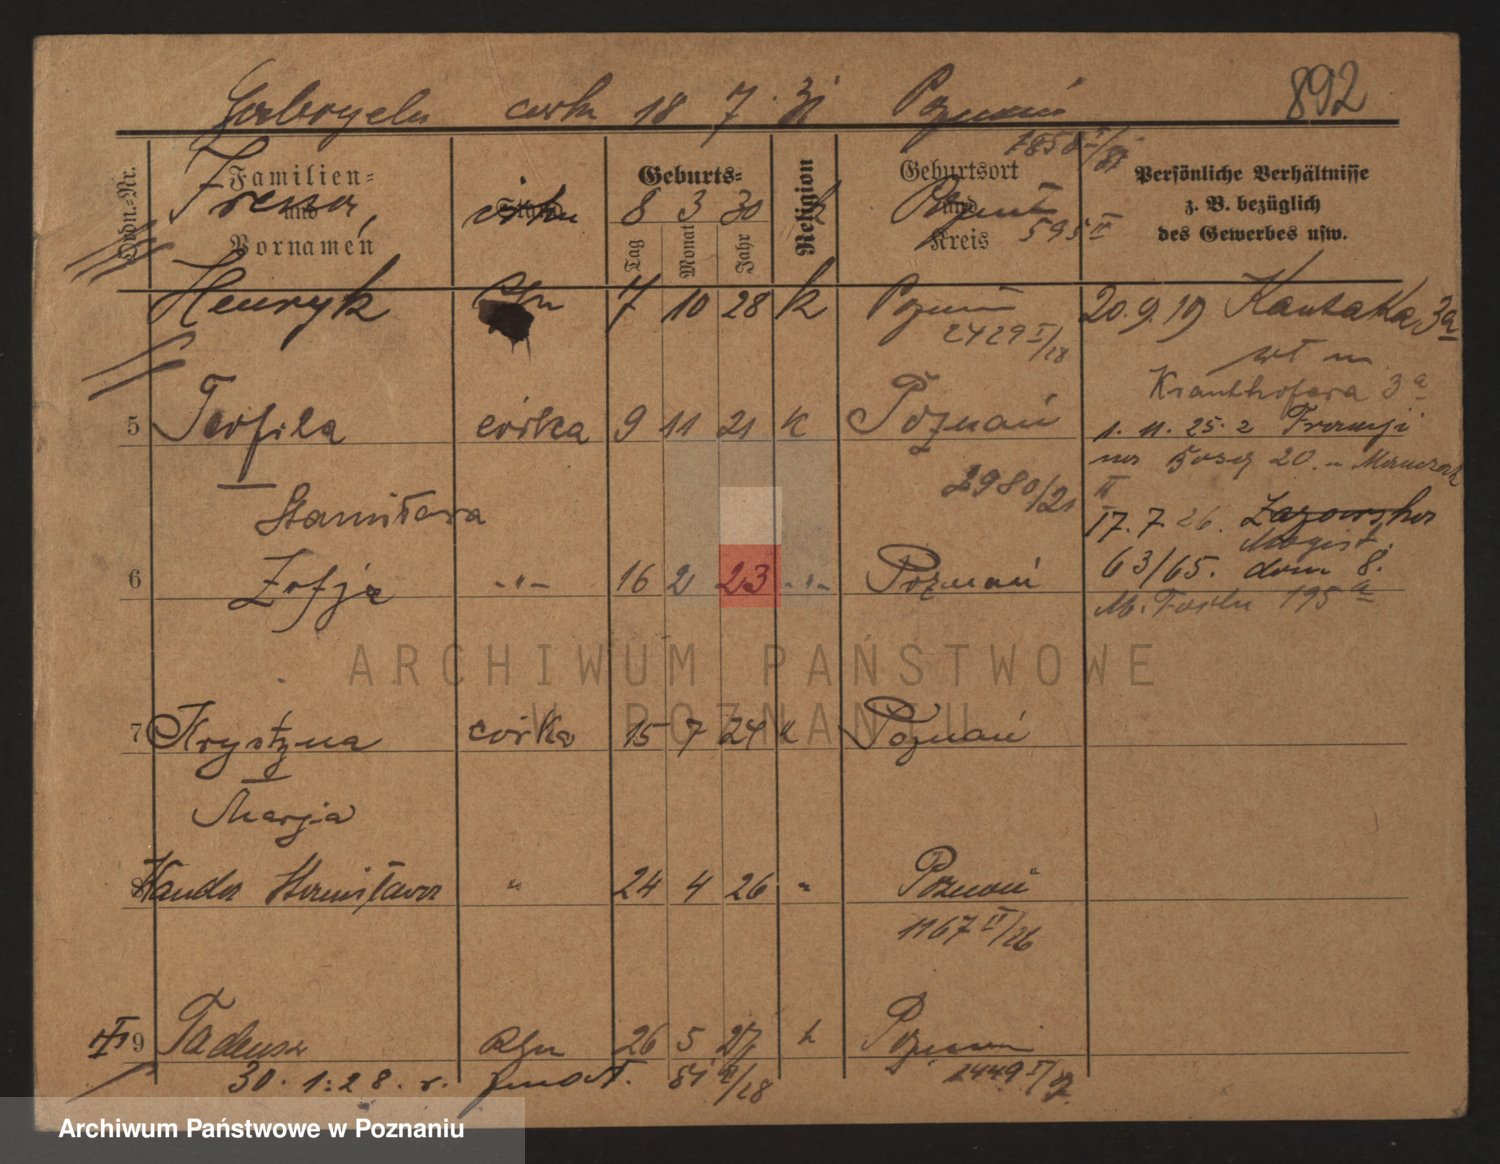 892
Gabryela córka 18 7 31 Poznań
1858 I/31
Ordn.-Nr. Familien- und Vornamen Geburts- Tag Monat Jahr Religion Geburtsort und Kreis Persönliche Verhältnisse z. B. bezüglich des Gewerbes usw.
Irena, córka 8 3 30 k Poznań
595 II
Henryk syn 7 10 28 k Poznań 20.9.19 Kantaka 3a
2429 I/28
Kranthofera 3a
5 Teofila córka 9 11 21 k Poznań 1. 11. 25. z
20.
2980/21 II
Stanisława 17. 7 26.
Magist.
6 Zofja -"- 16 2 23 -"- Poznań 63/65. dom 8.
M. Focha 195a
ARCHIWUM PAŃSTWOWE
W POZNANIU
7 Krystyna córka 15 7 24 k Poznań
Marja
8 Wanda Stanisława " 24 4 26 " Poznań
1167 II/26
9 Tadeusz syn 26 5 27 k Poznań
30. 1. 28. r. zmarł. 1449 I/27
Archiwum Państwowe w Poznaniu